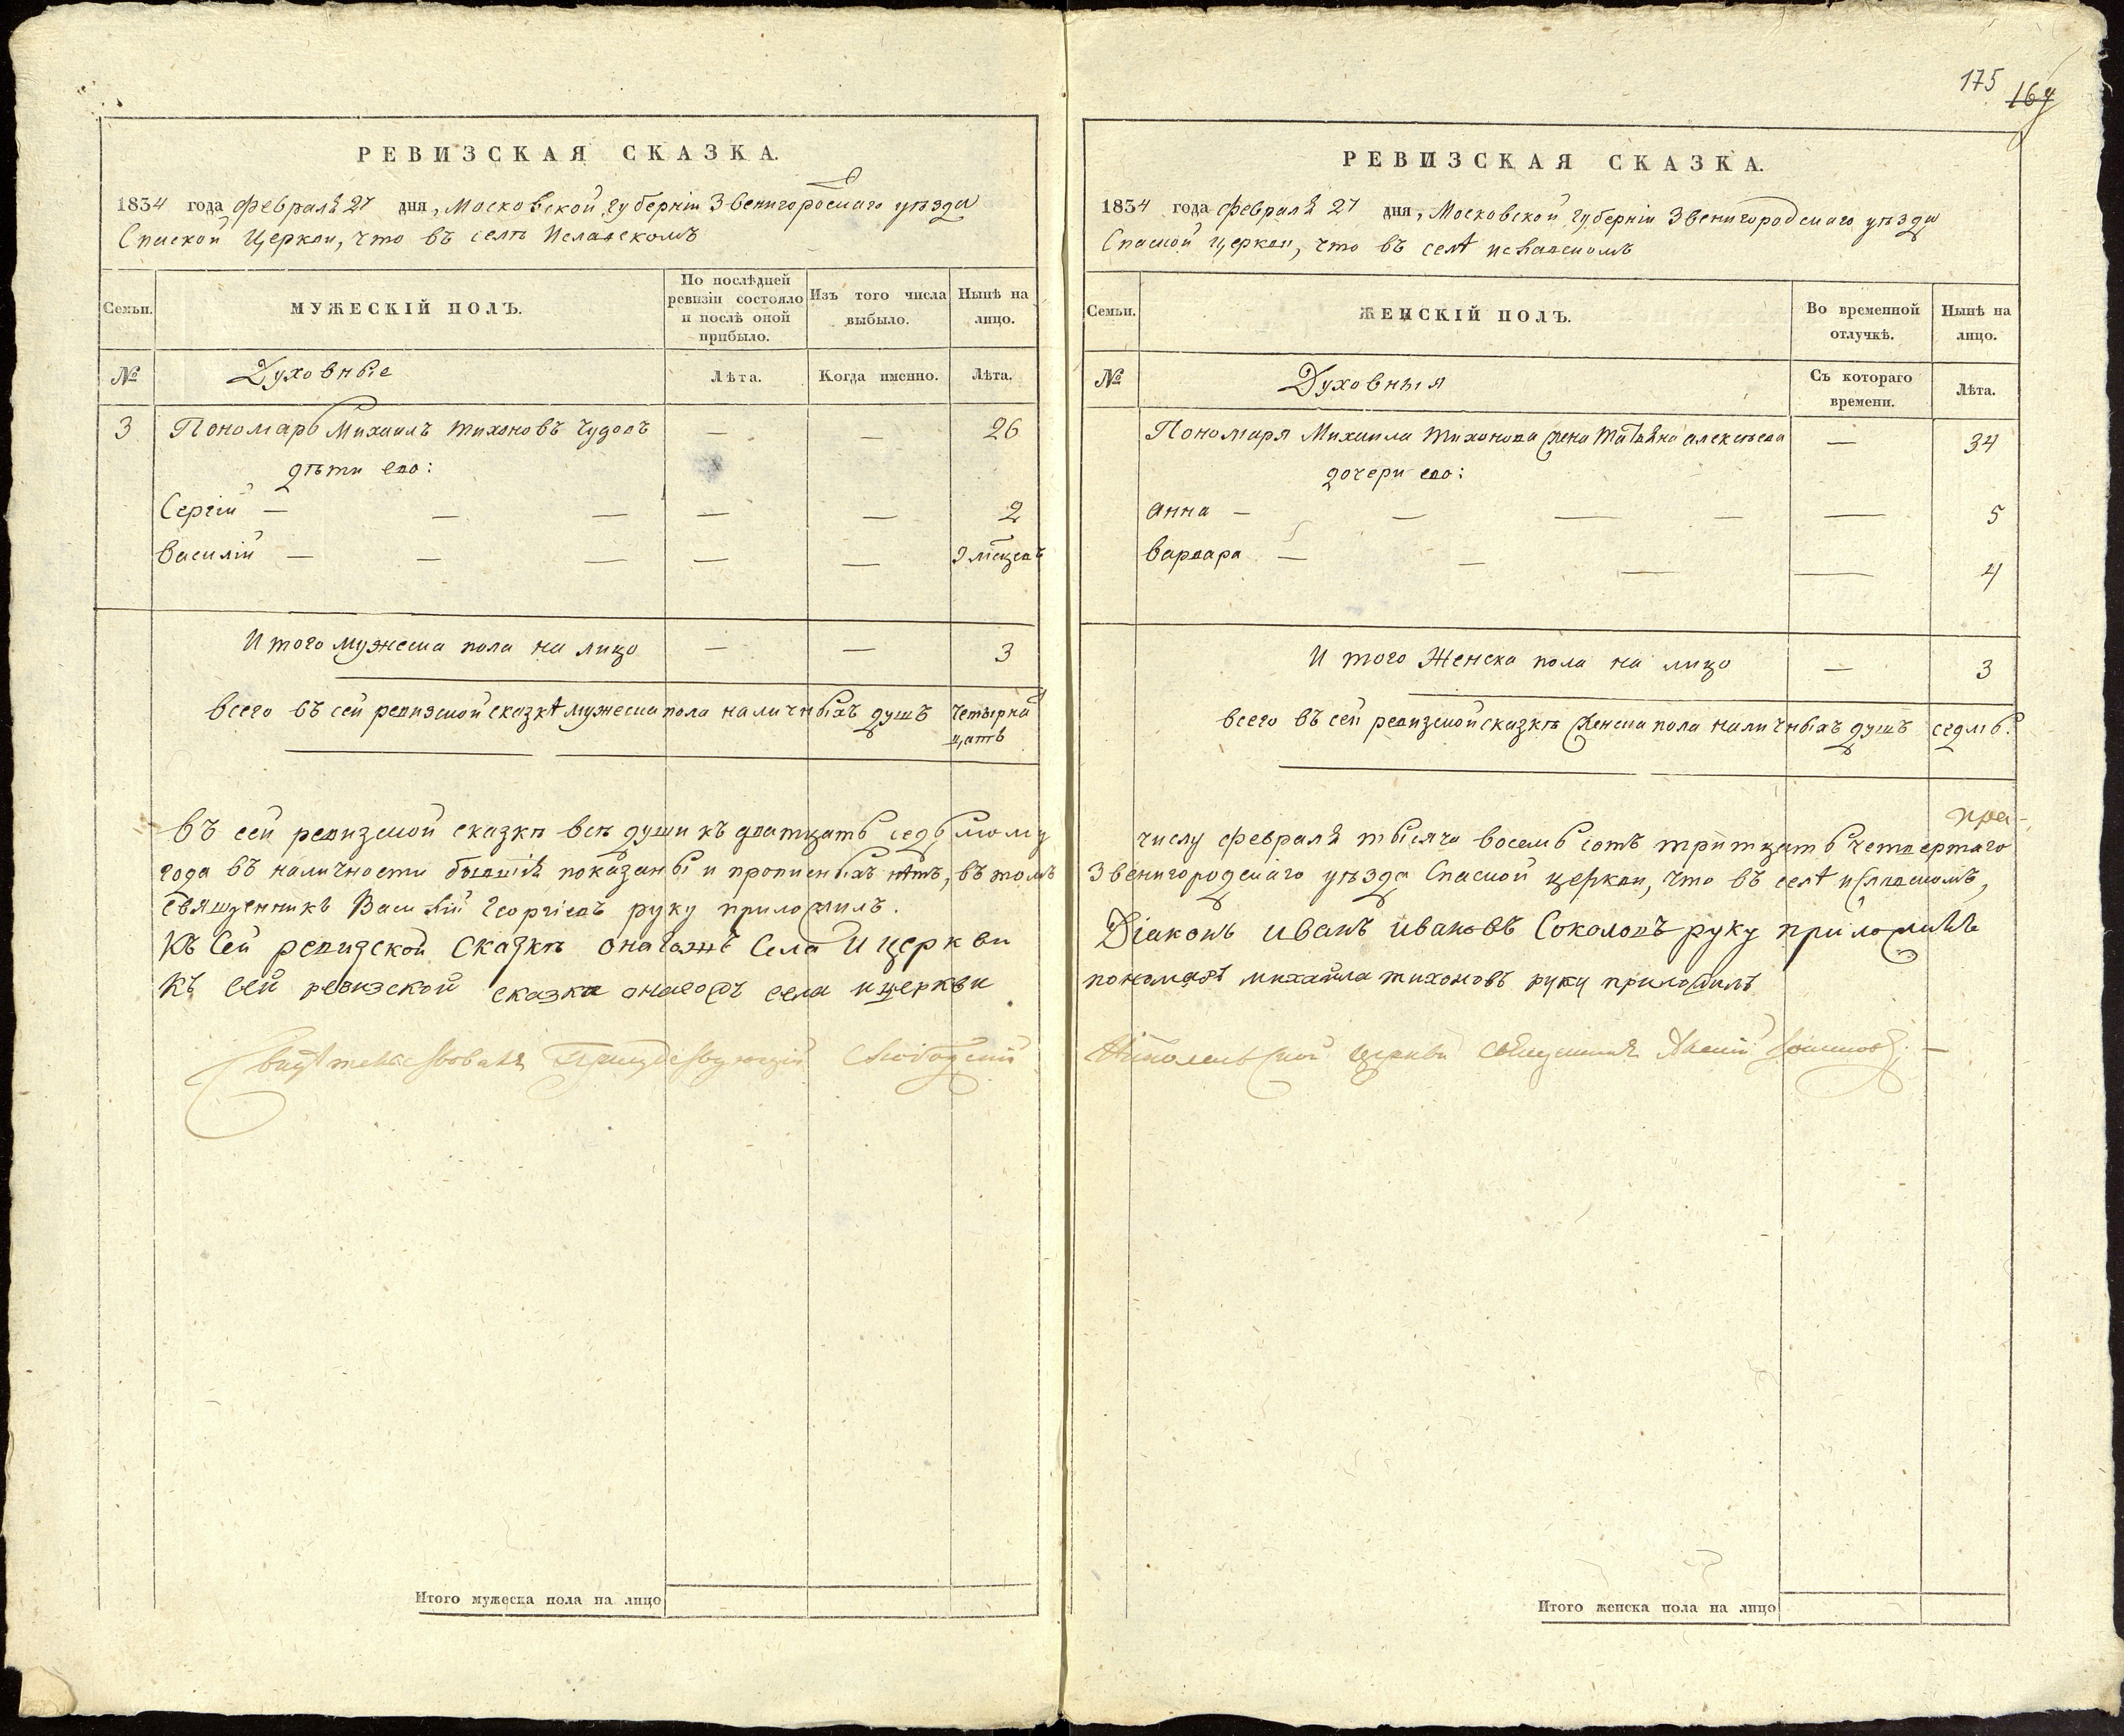 175
167
РЕВИЗСКАЯ СКАЗКА.
1834 года февраля 27 дня, Московской губерніи Звенигородскаго уѣзда
Спаской Церкви, что въ селѣ Иславскомъ
Семьи.
МУЖЕСКІЙ ПОЛЪ.
По послѣдней ревизіи состояло и послѣ оной прибыло.
Изъ того числа выбыло.
Нынѣ на лицо.
№ Духовные Лѣта. Когда именно. Лѣта.
3 Пономарь Михаилъ Тихоновъ Чудовъ — — 26
дѣти его:
Сергій — — — — — 2
Василій — — — — — 9 мѣсцовъ
Итого мужеска пола на лицо — — 3
Всего въ сей ревизской сказкѣ мужеска пола наличныхъ душъ четырна
цать
Въ сей ревизской сказкѣ всѣ души къ дватцать седьмому
года въ наличности бывшія показаны и прописныхъ нѣтъ, въ томъ
священникъ Василій Георгіевъ руку приложилъ.
Къ сей ревизской сказкѣ онагожъ села и церкви
Къ сей ревизской сказки онагожъ села и церкви
Свидѣтельствовалъ
Итого мужеска пола на лицо
РЕВИЗСКАЯ СКАЗКА.
1834 года февраля 27 дня, Московской губерніи Звенигородскаго уѣзда
Спаской церкви, что въ селѣ Иславскомъ
Семьи.
ЖЕНСКІЙ ПОЛЪ.
Во временной отлучкѣ.
Нынѣ на лицо.
№ Духовныя Съ котораго времени. Лѣта.
Пономаря Михаила Тихонова жена Татьяна Алексѣева — 34
дочери его:
Анна — — — — — 5
Варвара — — — — 4
Итого Женска пола на лицо — 3
Всего въ сей ревизской сказкѣ женска пола наличныхъ душъ седмь.
числу февраля тысяча восемь сотъ тритцать четвертаго
Звенигородскаго уѣзда Спаской церкви, что въ селѣ Иславскомъ,
Діаконъ Иванъ Ивановъ Соколовъ руку приложилъ
пономарь михаила тихоновъ руку приложилъ
церкви священникъ
Итого женска пола на лицо